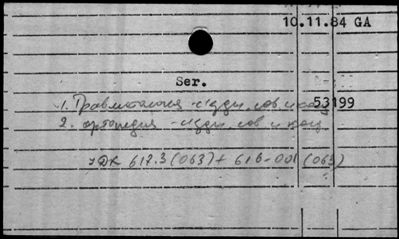 10.11.84 GA
Ser.
1. Травматология - с'езди, сов и кон
53199
2. ортопедия - с'езди, сов и кон
УДК 617.3 (063) + 616-001 (063)